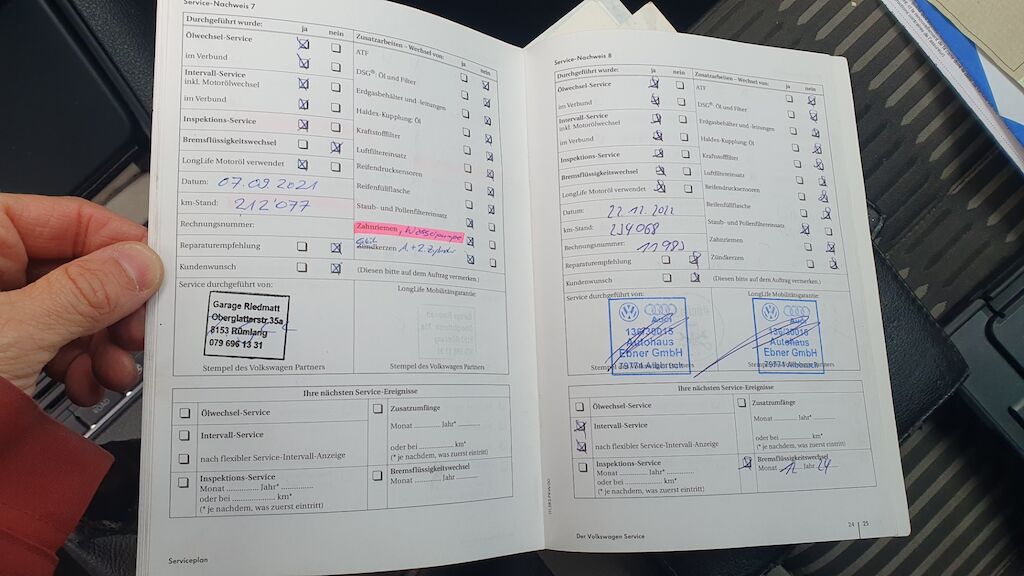 Service-Nachweis 7
Durchgeführt wurde: ja nein
Ölwechsel-Service
im Verbund
Intervall-Service
inkl. Motorölwechsel
im Verbund
Inspektions-Service
Bremsflüssigkeitswechsel
LongLife Motoröl verwendet
Datum: 07.09.2021
km-Stand: 212'077
Rechnungsnummer:
Reparaturempfehlung
Kundenwunsch
Zusatzarbeiten – Wechsel von: ja nein
ATF
DSG®: Öl und Filter
Erdgasbehälter und -leitungen
Haldex-Kupplung: Öl
Kraftstofffilter
Luftfiltereinsatz
Reifendrucksensoren
Reifenfüllflasche
Staub- und Pollenfiltereinsatz
Zahnriemen, Wasserpumpe
Zündkerzen 1.+2. Zylinder
(Diesen bitte auf dem Auftrag vermerken.)
Service durchgeführt von:
Garage Riedmatt
Oberglatterstr. 35a
8153 Rümlang
079 696 13 31
Stempel des Volkswagen Partners
LongLife Mobilitätsgarantie:
Stempel des Volkswagen Partners
Ihre nächsten Service-Ereignisse
Ölwechsel-Service
Intervall-Service
nach flexibler Service-Intervall-Anzeige
Inspektions-Service
Monat ............. Jahr* .............
oder bei ................. km*
(* je nachdem, was zuerst eintritt)
Zusatzumfänge
Monat ............. Jahr* .........
oder bei ............... km*
(* je nachdem, was zuerst eintritt)
Bremsflüssigkeitswechsel
Monat ............. Jahr .........
Serviceplan
Service-Nachweis 8
Durchgeführt wurde: ja nein
Ölwechsel-Service
im Verbund
Intervall-Service
inkl. Motorölwechsel
im Verbund
Inspektions-Service
Bremsflüssigkeitswechsel
LongLife Motoröl verwendet
Datum: 22.12.2022
km-Stand: 234068
Rechnungsnummer: 11993
Reparaturempfehlung
Kundenwunsch
Zusatzarbeiten – Wechsel von: ja nein
ATF
DSG®: Öl und Filter
Erdgasbehälter und -leitungen
Haldex-Kupplung: Öl
Kraftstofffilter
Luftfiltereinsatz
Reifendrucksensoren
Reifenfüllflasche
Staub- und Pollenfiltereinsatz
Zahnriemen
Zündkerzen
(Diesen bitte auf dem Auftrag vermerken.)
Service durchgeführt von:
Audi
136/30015
Autohaus
Ebner GmbH
79774 Albbruck
Stempel des Volkswagen Partners
LongLife Mobilitätsgarantie:
Audi
136/30015
Autohaus
Ebner GmbH
79774 Albbruck
Stempel des Volkswagen Partners
Ihre nächsten Service-Ereignisse
Ölwechsel-Service
Intervall-Service
nach flexibler Service-Intervall-Anzeige
Inspektions-Service
Monat ............. Jahr* .............
oder bei ................. km*
(* je nachdem, was zuerst eintritt)
Zusatzumfänge
Monat ............. Jahr* .........
oder bei ............... km*
(* je nachdem, was zuerst eintritt)
Bremsflüssigkeitswechsel
Monat 12 Jahr 24
Der Volkswagen Service
24 25